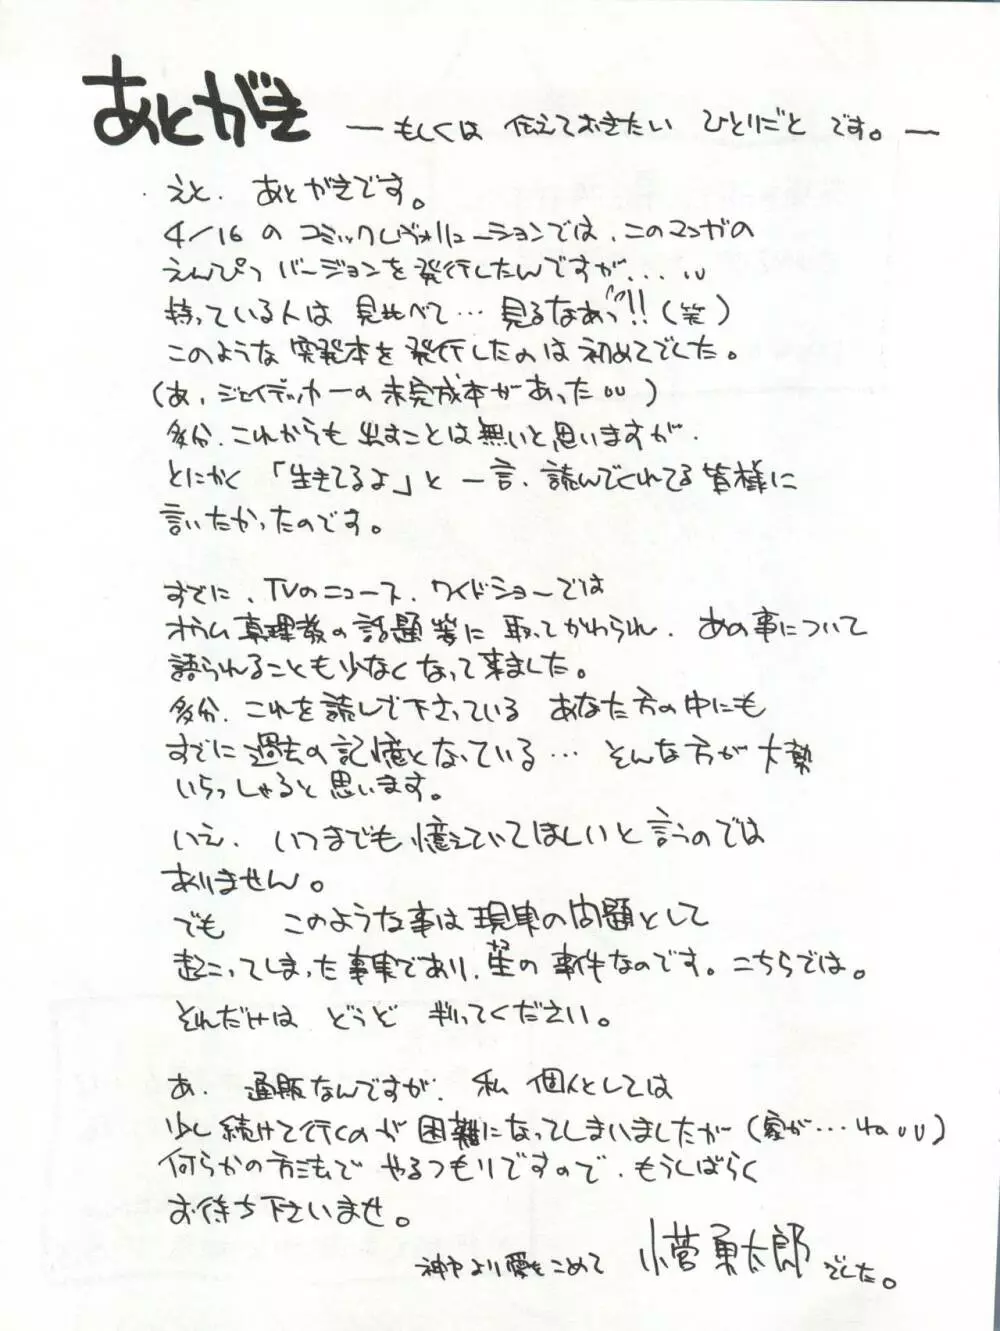 あとがき
― もしくは 伝えておきたい ひとりごと です。―
えと、あとがきです。
4/16 の コミックレヴォリューションでは、このマンガの
えんぴつ バージョンを発行したんですが、...
持っている人は 見比べて… 見るなあっ!!(笑)
このような 突発本を発行したのは初めてでした。
(あ、ジェイデッカーの未完成本があった)
多分、これからも 出すことは無いと思いますが、
とにかく「生きてるよ」と 一言、読んでくれてる皆様に
言いたかったのです。
すでに、TVのニュース、ワイドショーでは
オウム真理教の話題等に 取ってかわられ、あの事について
語られることも少なくなって来ました。
多分、これを読んで下さっている あなた方の中にも
すでに過去の記憶となっている… そんな方が大勢
いらっしゃると思います。
いえ、いつまでも憶えていてほしいと言うのでは
ありません。
でも このような事は現実の問題として
起こってしまった事実であり、生の事件なのです。こちらでは。
それだけは どうぞ 判ってください。
あ、通販なんですが、私 個人としては
少し続けて行くのが困難になってしまいましたが(家が…ね)
何らかの方法で やるつもりですので、もうしばらく
お待ち下さいませ。
神戸より愛をこめて 小菅勇太郎でした。